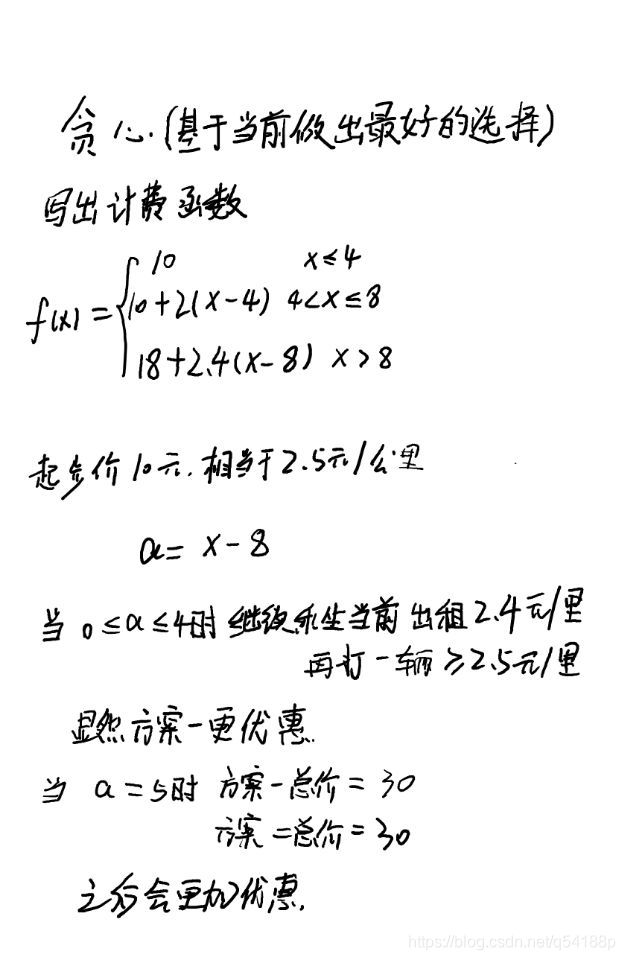 贪心.(基于当前做出最好的选择)
写出计费函数
f(x)={10 x≤4
10+2(x-4) 4<x≤8
18+2.4(x-8) x>8
起步价10元.相当于2.5元/公里
a= x-8
当 0≤a≤4时 继续乘坐当前出租2.4元/里
再打一辆≥2.5元/里
显然方案一更优惠.
当 a=5时 方案一总价=30
方案二总价=30
之后会更加优惠.
https://blog.csdn.net/q54188p